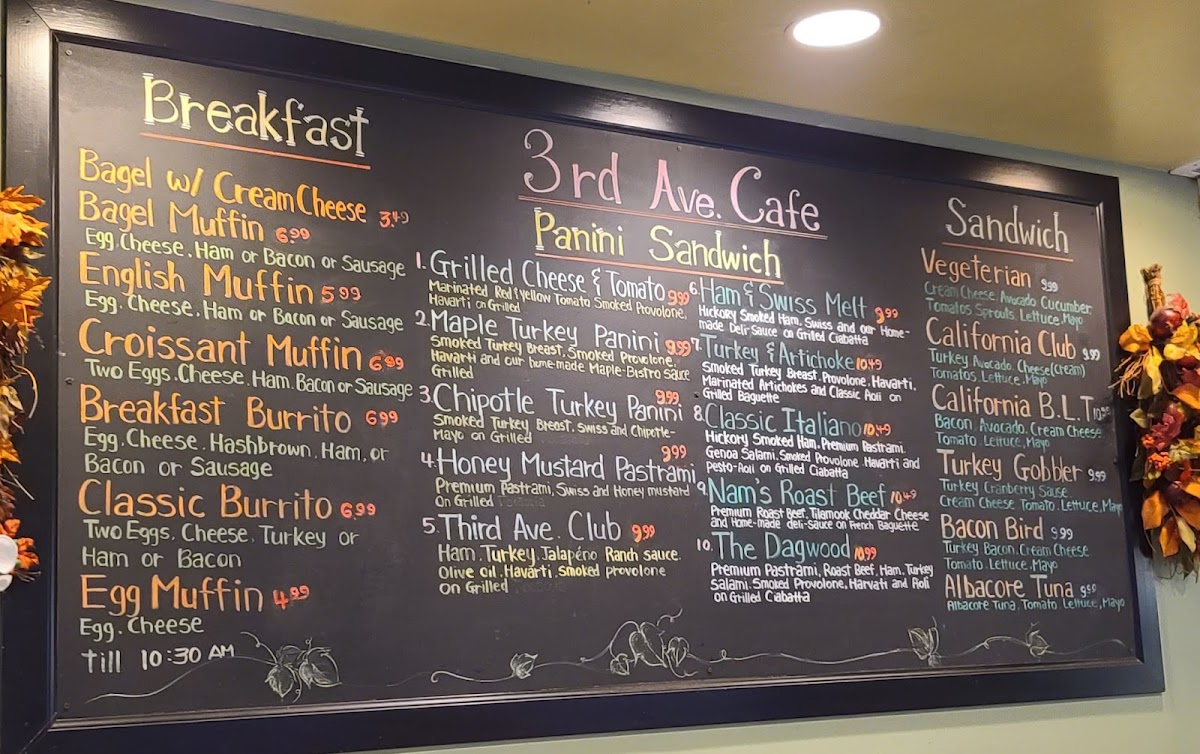 Breakfast
Bagel w/ Cream Cheese 3.49
Bagel Muffin 6.99
Egg.Cheese.Ham or Bacon or Sausage
English Muffin 5.99
Egg.Cheese.Ham or Bacon or Sausage
Croissant Muffin 6.99
Two Eggs.Cheese.Ham.Bacon or Sausage
Breakfast Burrito 6.99
Egg.Cheese.Hashbrown.Ham,or
Bacon or Sausage
Classic Burrito 6.99
Two Eggs.Cheese.Turkey or
Ham or Bacon
Egg Muffin 4.99
Egg.Cheese
till 10:30 AM
3rd Ave. Cafe
Panini Sandwich
1. Grilled Cheese & Tomato 9.99
Marinated Red & Yellow Tomato Smoked Provolone,
Havarti on Grilled
2. Maple Turkey Panini 9.99
Smoked Turkey Breast, Smoked Provolone,
Havarti and our home-made Maple-Bistro sauce
Grilled
3. Chipotle Turkey Panini 9.99
Smoked Turkey Breast, Swiss and Chipotle-
Mayo on Grilled
4. Honey Mustard Pastrami 9.99
Premium Pastrami, Swiss and Honey mustard
on Grilled
5. Third Ave. Club 9.99
Ham.Turkey.Jalapéno Ranch sauce.
Olive oil.Havarti.smoked provolone
On Grilled
6. Ham & Swiss Melt 9.99
Hickory Smoked Ham, Swiss and our Home-
made Deli-Sauce on Grilled Ciabatta
7. Turkey & Artichoke 10.49
Smoked Turkey Breast.Provolone.Havarti,
Marinated Artichokes and Classic Aioli on
Grilled Baguette
8. Classic Italiano 10.49
Hickory Smoked Ham, Premium Pastrami,
Genoa Salami, Smoked Provolone, Havarti and
Pesto-Aioli on Grilled Ciabatta
9. Nam's Roast Beef 10.49
Premium Roast Beef, Tilamook Cheddar Cheese
and Home-made deli-sauce on French Baguette
10. The Dagwood 10.99
Premium Pastrami, Roast Beef, Ham, Turkey
Salami, Smoked Provolone, Harvati and Aioli
on Grilled Ciabatta
Sandwich
Vegeterian 9.99
Cream Cheese, Avocado Cucumber
Tomatos Sprouts, Lettuce, Mayo
California Club 9.99
Turkey Avocado, Cheese(Cream)
Tomatos, Lettuce, Mayo
California B.L.T 10.99
Bacon, Avocado, Cream Cheese
Tomato Lettuce, Mayo
Turkey Gobbler 9.99
Turkey Cranberry Sause
Cream Cheese Tomato, Lettuce, Mayo
Bacon Bird 9.99
Turkey Bacon, Cream Cheese
Tomato, Lettuce, Mayo
Albacore Tuna 9.99
Albacore Tuna, Tomato Lettuce, Mayo